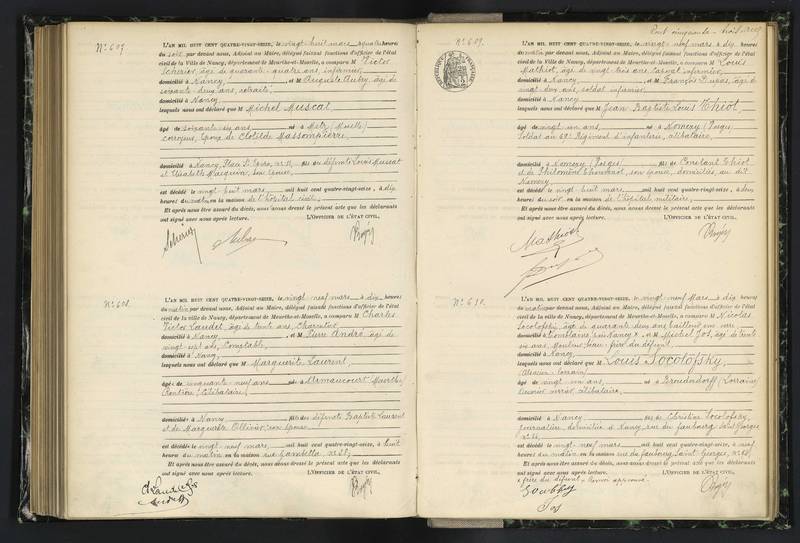 N° 607
L'AN MIL HUIT CENT QUATRE-VINGT-SEIZE, le vingt huit mars, à quatre heures
du soir par devant nous, Adjoint au Maire, délégué faisant fonctions d'officier de l'état
civil de la Ville de Nancy, département de Meurthe-et-Moselle, a comparu M Victor
Scherier, âgé de quarante quatre ans, infirmier,
domicilié à Nancy, et M Auguste Aubry, âgé de
soixante deux ans, retraité,
domicilié à Nancy
lesquels nous ont déclaré que M Michel Muscat
âgé de soixante six ans, né à Metz (Moselle)
corroyeur, époux de Clotilde Massompierre,
domicilié à Nancy, Place St. Epvre, n° 11, fils des défunts Louis Muscat
et Elisabeth Marquin, son épouse,
est décédé le vingt huit mars mil huit cent quatre-vingt-seize, à dix
heures du matin en la maison de l'hôpital civil,
Et après nous être assuré du décès, nous avons dressé le présent acte que les déclarants
ont signé avec nous après lecture. L'OFFICIER DE L'ÉTAT CIVIL,
N° 608.
L'AN MIL HUIT CENT QUATRE-VINGT-SEIZE, le vingt neuf mars, à dix heures
du matin par devant nous, Adjoint au Maire, délégué faisant fonctions d'officier de l'état
civil de la ville de Nancy, département de Meurthe-et-Moselle, a comparu M Charles
Victor Laudel, âgé de trente ans, Charretier,
domicilié à Nancy, et M Pierre André, âgé de
vingt sept ans, Comptable,
domicilié à Nancy
lesquels nous ont déclaré que M Marguerite Laurent
âgée de cinquante neuf ans née à Armaucourt Meurthe
Rentière, Célibataire,
domiciliée à Nancy, fille des défunts Baptiste Laurent
et de Marguerite Ollivier, son épouse
est décédée le vingt neuf mars, mil huit cent quatre-vingt-seize, à huit
heures du matin en la maison rue Gambetta, n°
Et après nous être assuré du décès, nous avons dressé le présent acte que les déclarants
ont signé avec nous après lecture. L'OFFICIER DE L'ÉTAT CIVIL,
Cent cinquante-trois
N° 609.
RÉPUBLIQUE FRANÇAISE
L'AN MIL HUIT CENT QUATRE-VINGT-SEIZE, le vingt-neuf mars à dix heures
du matin par devant nous, Adjoint au Maire, délégué faisant fonctions d'officier de l'état
civil de la Ville de Nancy, département de Meurthe-et-Moselle, a comparu M Louis
Mathiot, âgé de vingt trois ans, caporal infirmier,
domicilié à Nancy, et M François Dupas, âgé de
vingt deux ans, soldat infirmier,
domicilié à Nancy
lesquels nous ont déclaré que M Jean Baptiste Louis Thiot,
âgé de vingt un ans, né à Nomexy (Vosges)
Soldat au 69e Régiment d'infanterie, célibataire,
domicilié à Nomexy (Vosges) fils de Constant Thiot
et de Philomène Thouvenot, son épouse, domiciliés au dit
Nomexy,
est décédé le vingt huit mars, mil huit cent quatre-vingt-seize, à
heures du soir en la maison de l'hôpital militaire,
Et après nous être assuré du décès, nous avons dressé le présent acte que les déclarants
ont signé avec nous après lecture. L'OFFICIER DE L'ÉTAT CIVIL,
Mathiot
N° 610.
L'AN MIL HUIT CENT QUATRE-VINGT-SEIZE, le vingt neuf Mars, à dix heures
du matin par devant nous, Adjoint au Maire, délégué faisant fonctions d'officier de l'état
civil de la ville de Nancy, département de Meurthe-et-Moselle, a comparu M Nicolas
Socolofsky, âgé de quarante deux ans, tailleur sur verre,
domicilié à Tomblaine près Nancy x et M Michel Jos, âgé de trente
six ans, Mouleur, beau-frère du défunt,
domicilié à Nancy
lesquels nous ont déclaré que M Louis Socolofsky,
Alsacien-Lorrain
âgé de vingt un ans, né à (Lorraine)
Ouvrier verrier, célibataire,
domicilié à Nancy fils de Christine Socolofsky,
journalière, domiciliée à Nancy, rue du faubourg Saint Georges
est décédé le vingt neuf mars mil huit cent quatre-vingt-seize, à neuf
heures du matin, en la maison rue du faubourg Saint Georges, n°
Et après nous être assuré du décès, nous avons dressé le présent acte que les déclarants
ont signé avec nous après lecture. L'OFFICIER DE L'ÉTAT CIVIL,
x frère du défunt x Renvoi approuvé.
Jos